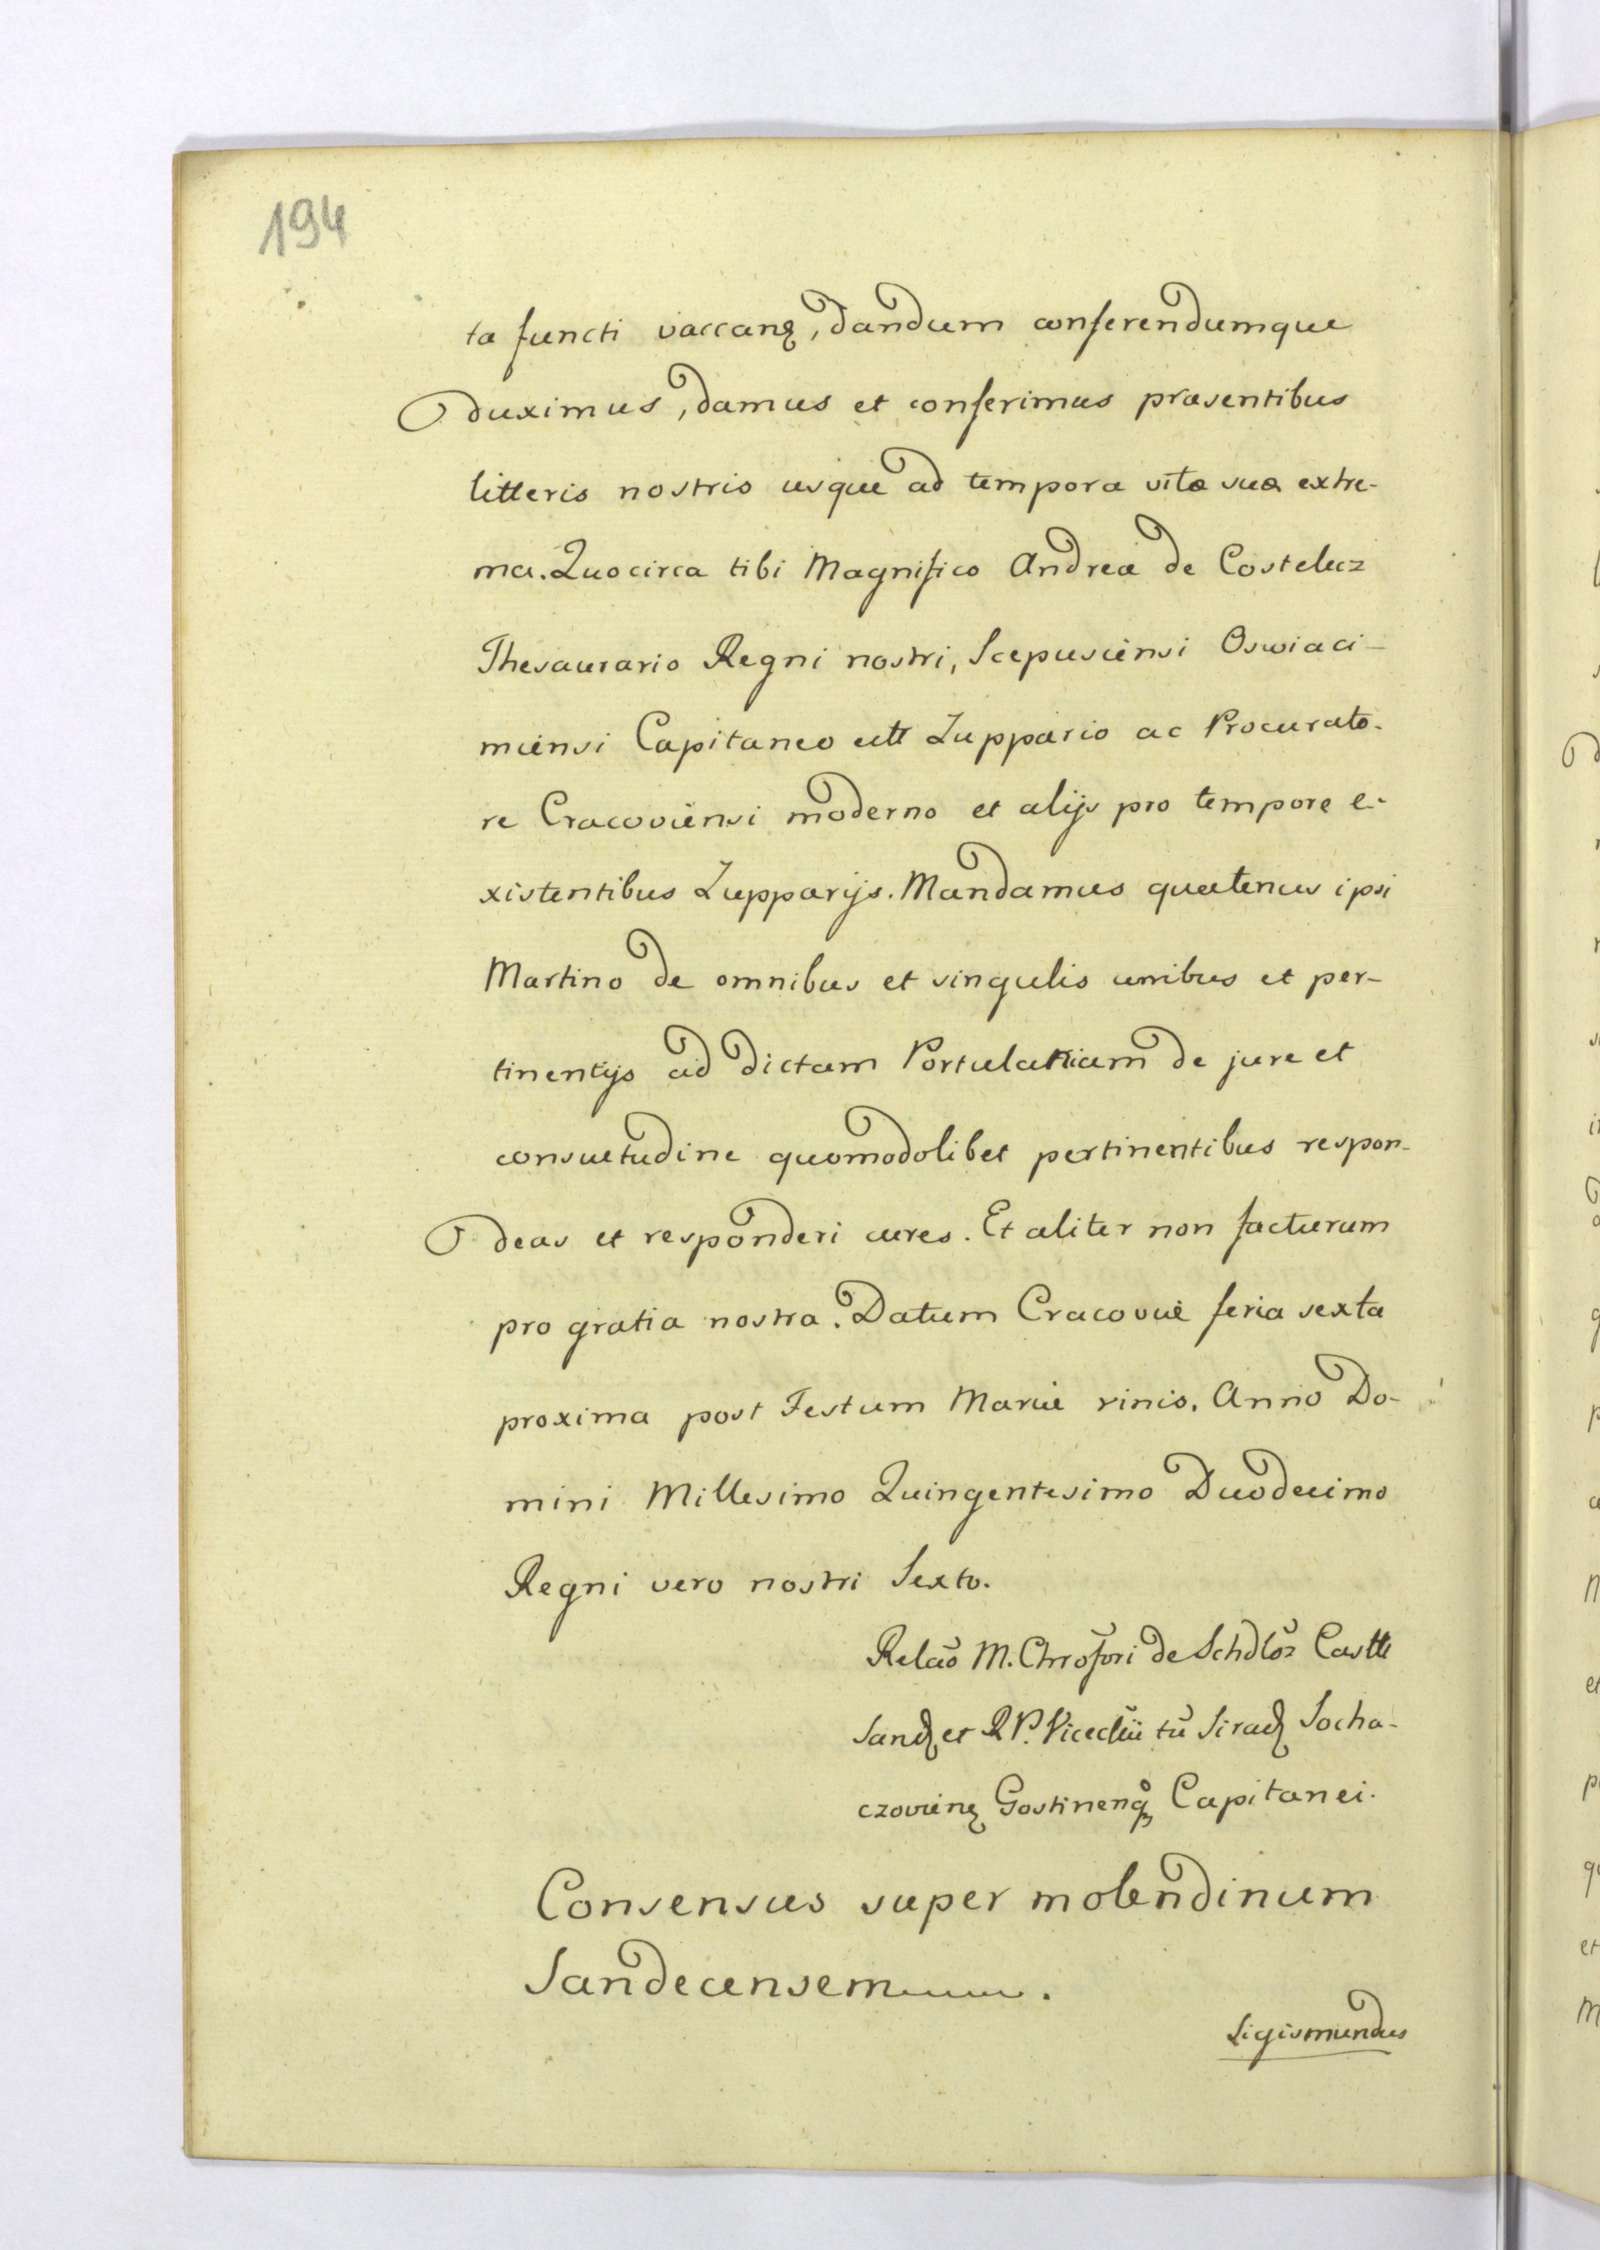 194
ta functi vaccanȝ, dandum conferendumque
duximus, damus et conferimus præsentibus
litteris nostris usque ad tempora vitæ suæ extre-
ma. Quocirca tibi Magnifico Andreæ de Costelecz
Thesaurario Regni nostri, Scepusiensi Oswiaci-
miensi Capitaneo Zuppario ac Procurato-
re Cracoviensi moderno et alijs pro tempore e-
xistentibus Zupparijs. Mandamus quatenus ipsi
Martino de omnibus et singulis et per-
tinentijs ad dictam Portulaniam de jure et
consuetudine quomodolibet pertinentibus respon-
deas et responderi cures. Et aliter non facturum
pro gratia nostra. Datum Cracoviæ feria sexta
proxima post Festum Mariæ Anno Do-
mini Millesimo Quingentesimo Duodecimo
Regni vero nostri Sexto.
Relaõ M. de Castll
et R P. Siradȝ Socha-
czovienȝ Gostinenqȝ Capitanei.
Consensus super molendinum
Sandecensem.
Sigismundus